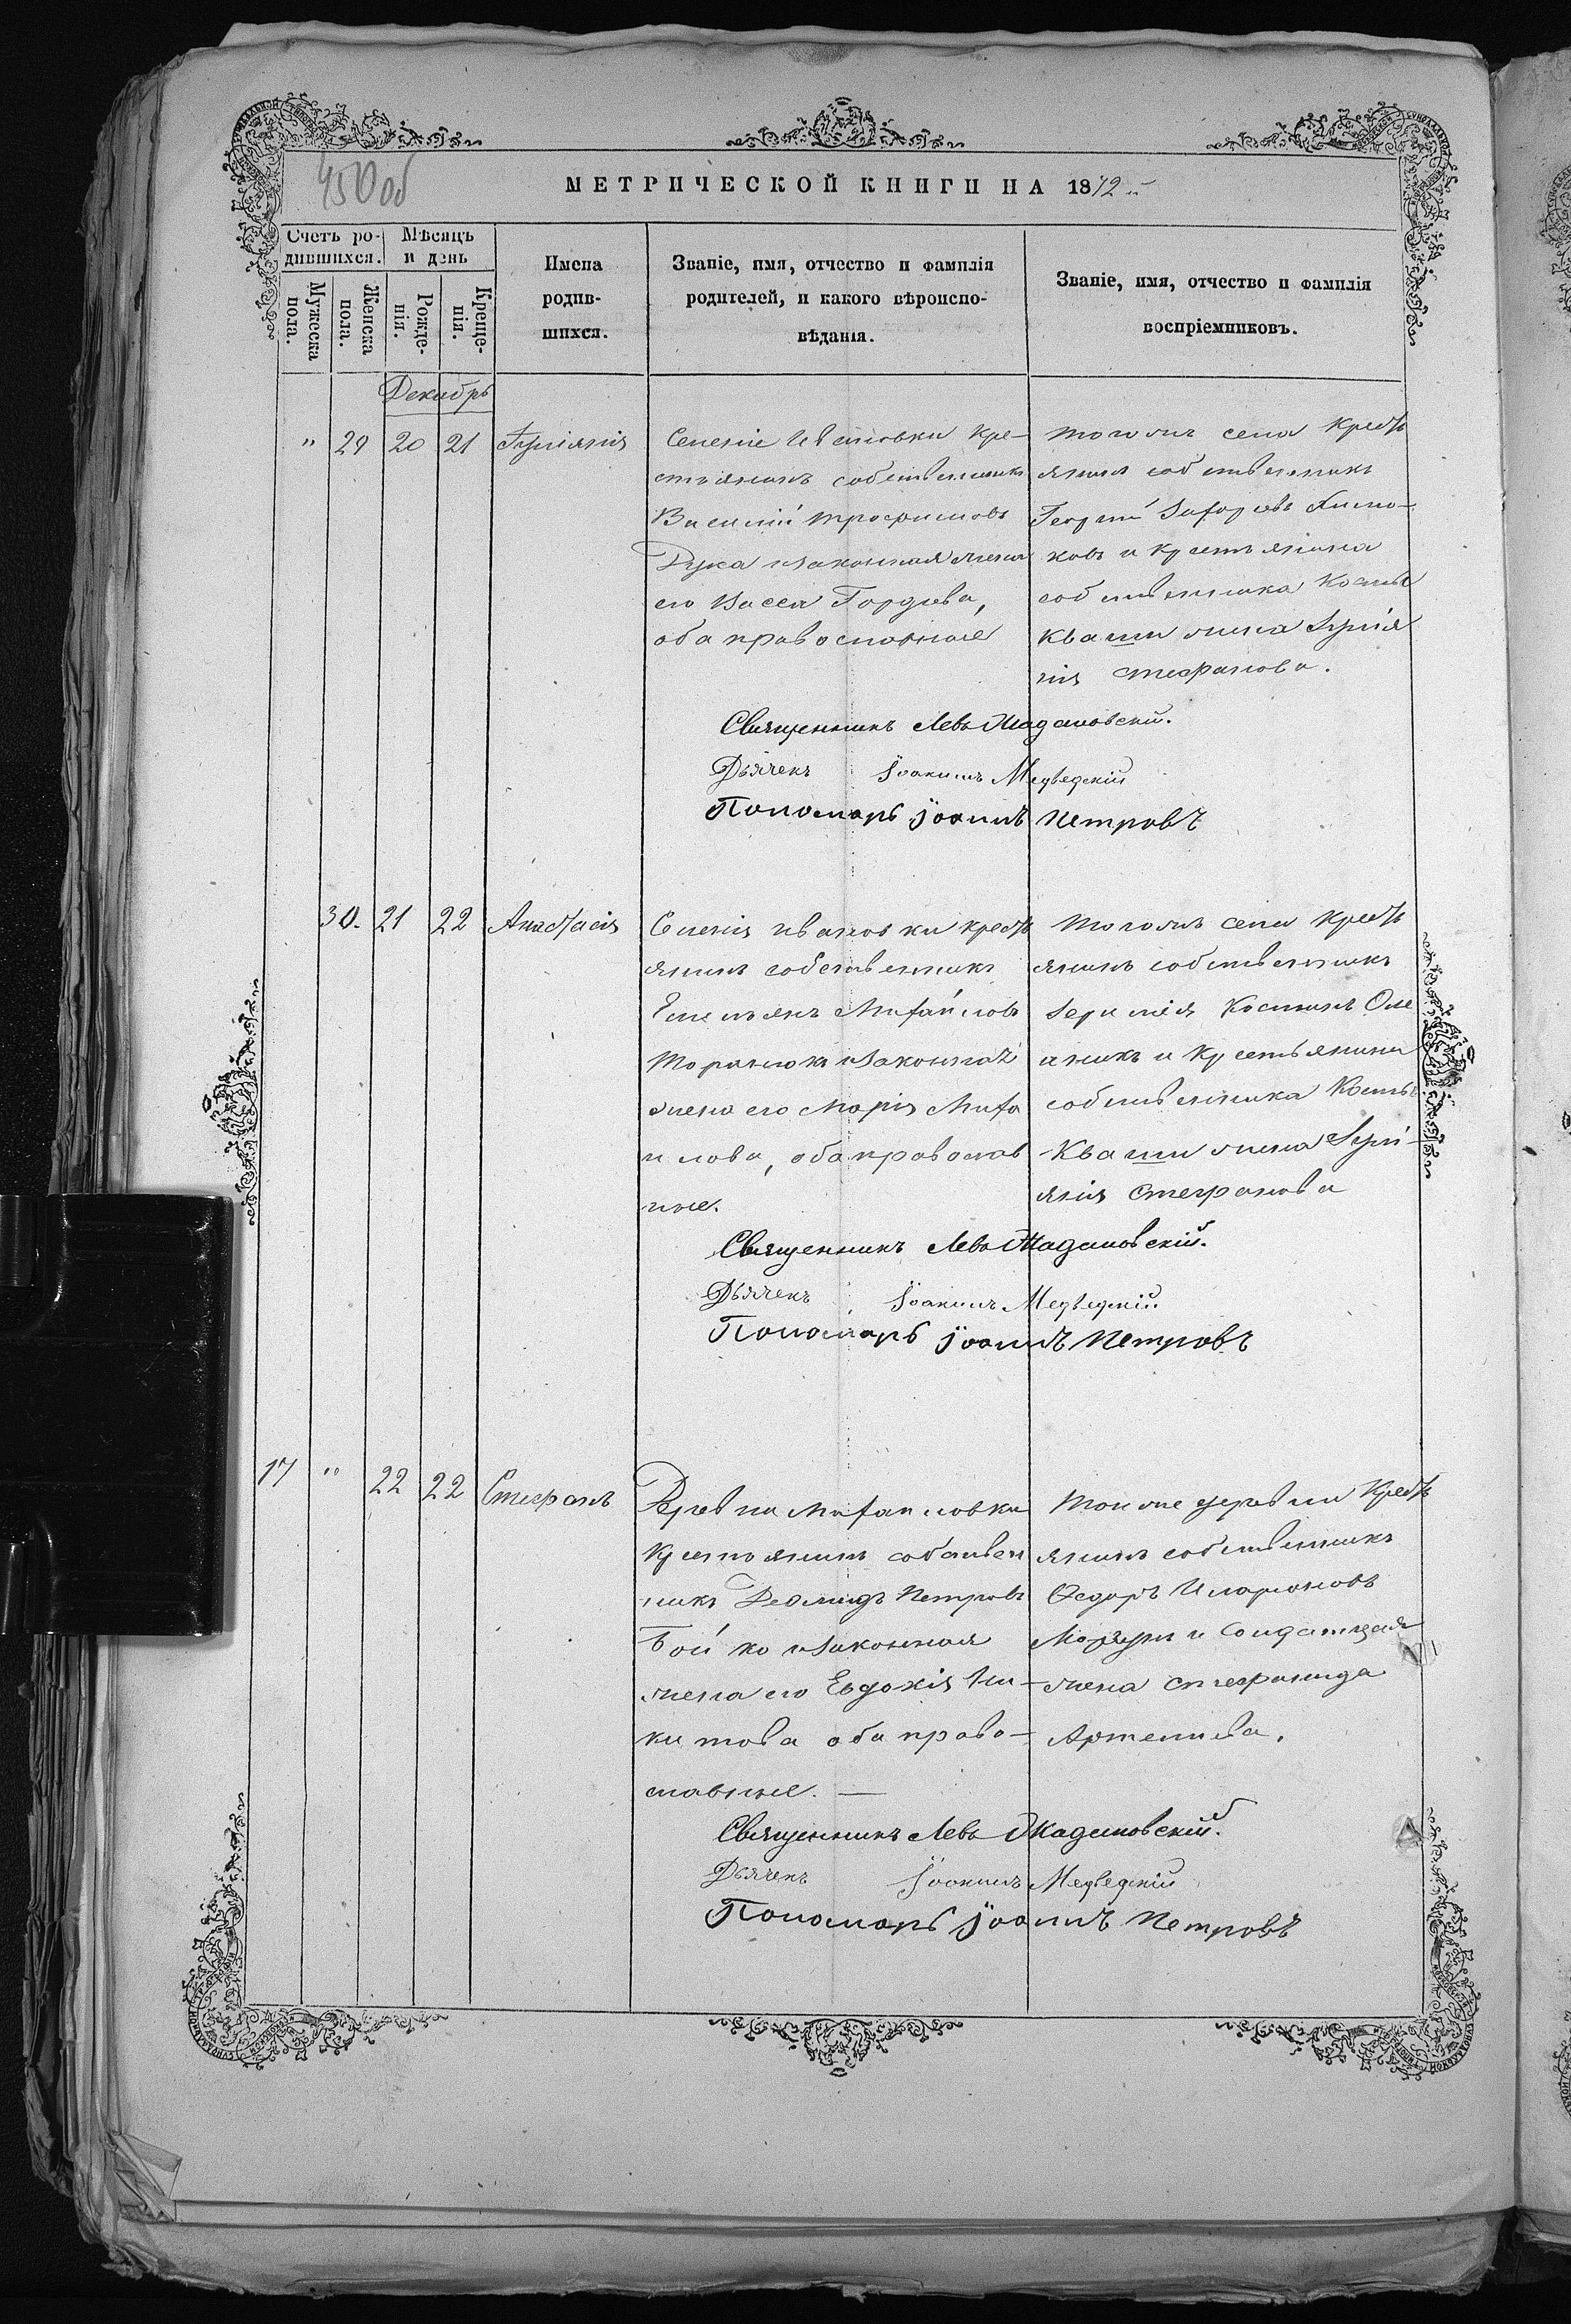 450 об
МЕТРИЧЕСКОЙ КНИГИ НА 1872 й
Счетъ ро-
дившихся.
Мѣсяцъ
и день
Мужеска
пола.
Женска
пола.
Рожде-
нія.
Креще-
нія.
Имена
родив-
шихся.
Званіе, имя, отчество и фамилія
родителей, и какого вѣроиспо-
вѣданія.
Званіе, имя, отчество и фамилія
воспріемниковъ.
Декабрь
" 29 20 21 Іуліянія
Селенія Ивановки кре-
стьянинъ собственникъ
Василій Трофимовъ
Дука и законная жена
его Васса Гордѣева,
оба православные
того жъ села крест
янинъ собственникъ
Георгій
ковъ и крестьянина
собственника Космы
Кваши жена Іуліа
нія Стефанова.
Священникъ Левъ Жадановскій.
Дьячекъ Іоакимъ Медведскій
Пономарь Іоаннъ Петровъ
30. 21 22 Анастасія
Селенія Ивановки крест
янинъ собственникъ
Емельянъ Михайловъ
и законная
жена его Марія Миха
илова, оба православ
ные.
того жъ села крест
янинъ собственникъ
Костинъ Оле
йникъ и крестьянина
собственника Космы
Кваши жена Іулі-
янія Стефанова
Священникъ Левъ Жадановскій.
Дьячекъ Іоакимъ Медведскій
Пономарь Іоаннъ Петровъ
17 " 22 22 Стефанъ
Деревни Михайловки
крестьянинъ собствен
никъ Деомидъ Петровъ
Бойко и законная
жена его Евдокія Ни-
китова оба право-
славные. —
Той же деревни крест
янинъ собственникъ
Ѳедоръ Иларіоновъ
и солдатская
жена Стефанида
Артемиева.
Священникъ Левъ Жадановскій.
Дьячекъ Іоакимъ Медведскій
Пономарь Іоаннъ Петровъ